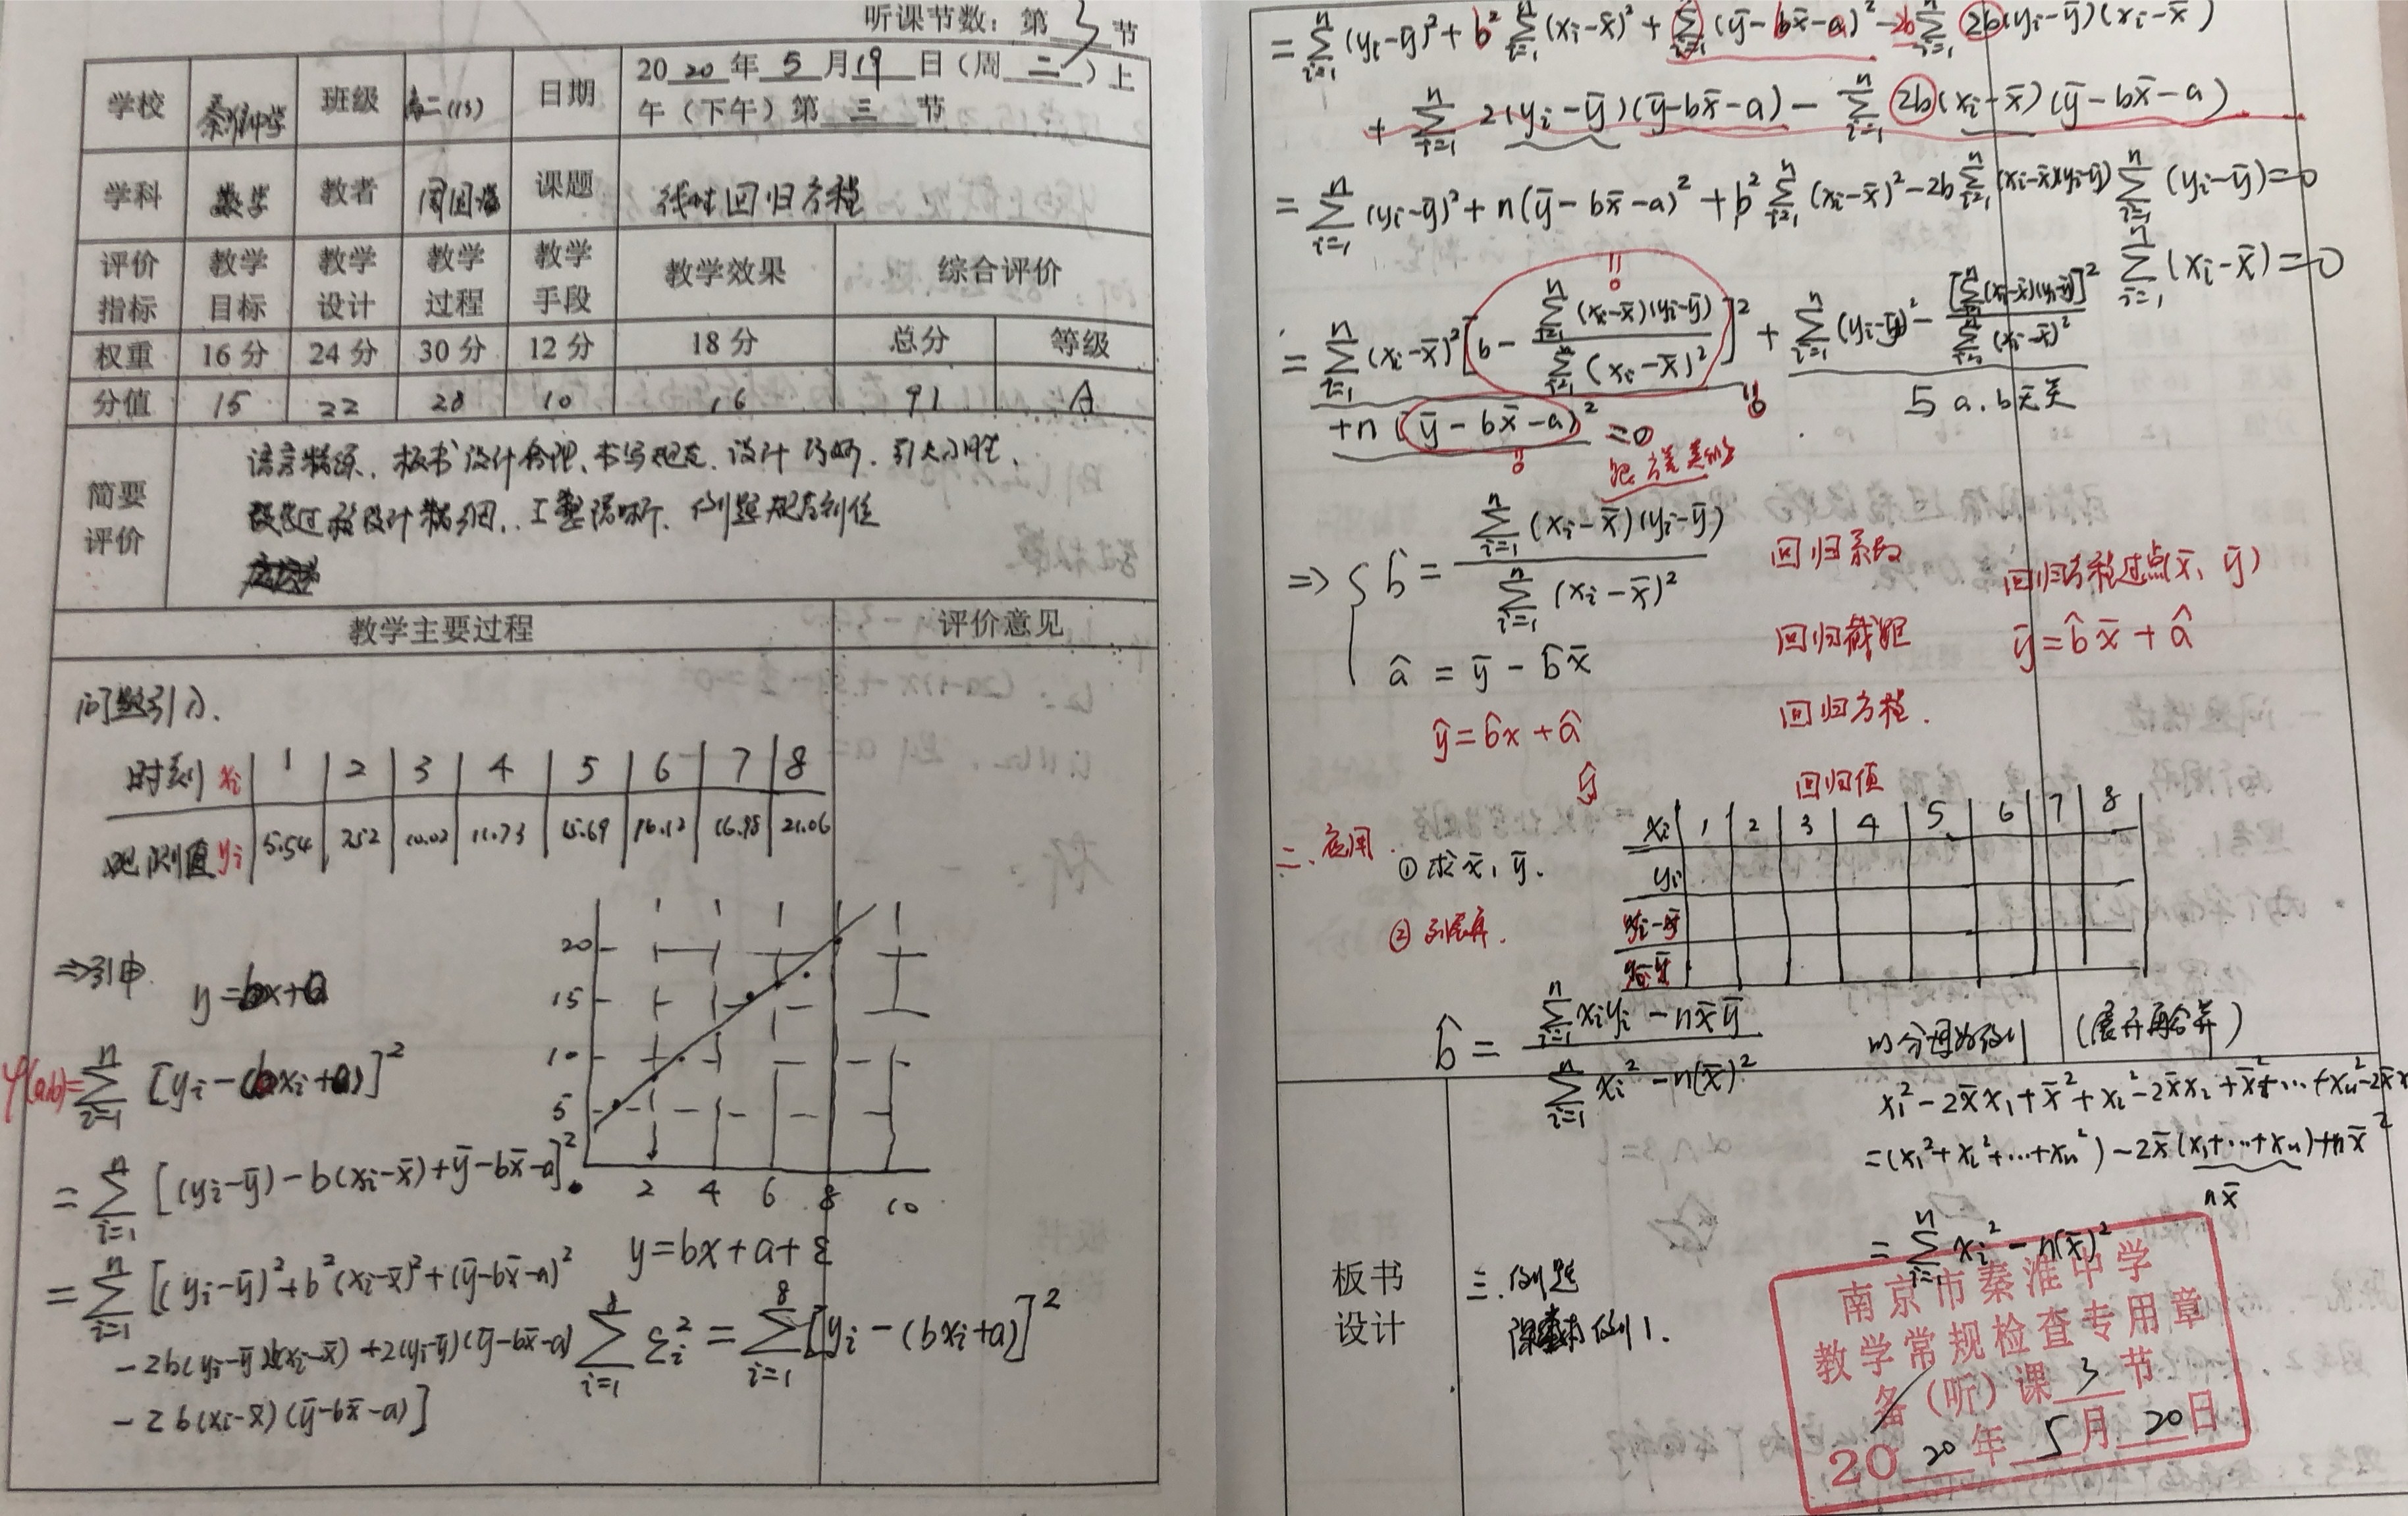 听课节数：第 3 节
学校 秦淮中学 班级 高二(13) 日期 2020年5月19日（周二）上午（下午）第三节
学科 数学 教者 课题 线性回归方程
评价指标 教学目标 教学设计 教学过程 教学手段 教学效果 综合评价
权重 16分 24分 30分 12分 18分 总分 等级
分值 15 22 28 10 16 91 A
简要评价
语言精练、板书设计合理、书写规范、设计巧妙、引人入胜、
教学主要过程 评价意见
问题引入.
时刻 xi 1 2 3 4 5 6 7 8
观测值 yi 5.54 7.52 10.02 11.73 15.69 16.12 16.98 21.06
20
15
10
5
0 2 4 6 8 10
⇒引申. y=bx+a
φ(a,b)=∑_{i=1}^{n}[yi-(bxi+a)]²
=∑_{i=1}^{n}[(yi-ȳ)-b(xi-x̄)+ȳ-bx̄-a]²
y=bx+a+ε
=∑_{i=1}^{n}[(yi-ȳ)²+b²(xi-x̄)²+(ȳ-bx̄-a)²
-2b(yi-ȳ)(xi-x̄)+2(yi-ȳ)(ȳ-bx̄-a)
-2b(xi-x̄)(ȳ-bx̄-a)]
∑_{i=1}^{8}εi²=∑_{i=1}^{8}[yi-(bxi+a)]²
=∑_{i=1}^{n}(yi-ȳ)²+b²∑_{i=1}^{n}(xi-x̄)²+∑_{i=1}^{n}(ȳ-bx̄-a)²-2b∑_{i=1}^{n}2b(yi-ȳ)(xi-x̄)
+∑_{i=1}^{n}2(yi-ȳ)(ȳ-bx̄-a)-∑_{i=1}^{n}2b(xi-x̄)(ȳ-bx̄-a)
=∑_{i=1}^{n}(yi-ȳ)²+n(ȳ-bx̄-a)²+b²∑_{i=1}^{n}(xi-x̄)²-2b∑_{i=1}^{n}(xi-x̄)(yi-ȳ)
∑_{i=1}^{n}(yi-ȳ)=0
∑_{i=1}^{n}(xi-x̄)=0
=∑_{i=1}^{n}(xi-x̄)²[b-∑_{i=1}^{n}(xi-x̄)(yi-ȳ)/∑_{i=1}^{n}(xi-x̄)²]²+∑_{i=1}^{n}(yi-ȳ)²-[∑_{i=1}^{n}(xi-x̄)(yi-ȳ)]²/∑_{i=1}^{n}(xi-x̄)²
与a.b无关
+n(ȳ-bx̄-a)²=0
跟方差类似
⇒{b̂=∑_{i=1}^{n}(xi-x̄)(yi-ȳ)/∑_{i=1}^{n}(xi-x̄)² 回归系数 回归方程过点(x̄,ȳ)
â=ȳ-b̂x̄ 回归截距 ȳ=b̂x̄+â
ŷ=b̂x+â 回归方程.
ŷ 回归值
二、应用. ①求x̄,ȳ.
②列表算.
xi 1 2 3 4 5 6 7 8
yi
b̂=(∑_{i=1}^{n}xiyi-nx̄ȳ)/(∑_{i=1}^{n}xi²-n(x̄)²) 以分母为例 （展开再合并）
x1²-2x̄x1+x̄²+x2²-2x̄x2+x̄²+…+xn²-2x̄x
=(x1²+x2²+…+xn²)-2x̄(x1+…+xn)+nx̄²
nx̄
=∑_{i=1}^{n}xi²-n(x̄)²
板书设计
三.例题
例1.
南京市秦淮中学
教学常规检查专用章
备（听）课 3 节
2020年5月20日